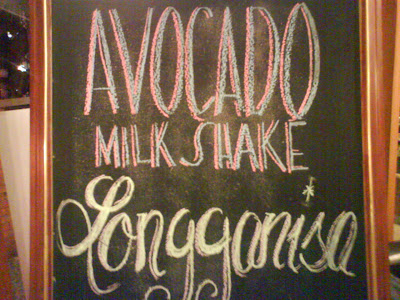 AVOCADO
MILK SHAKE
Longganisa